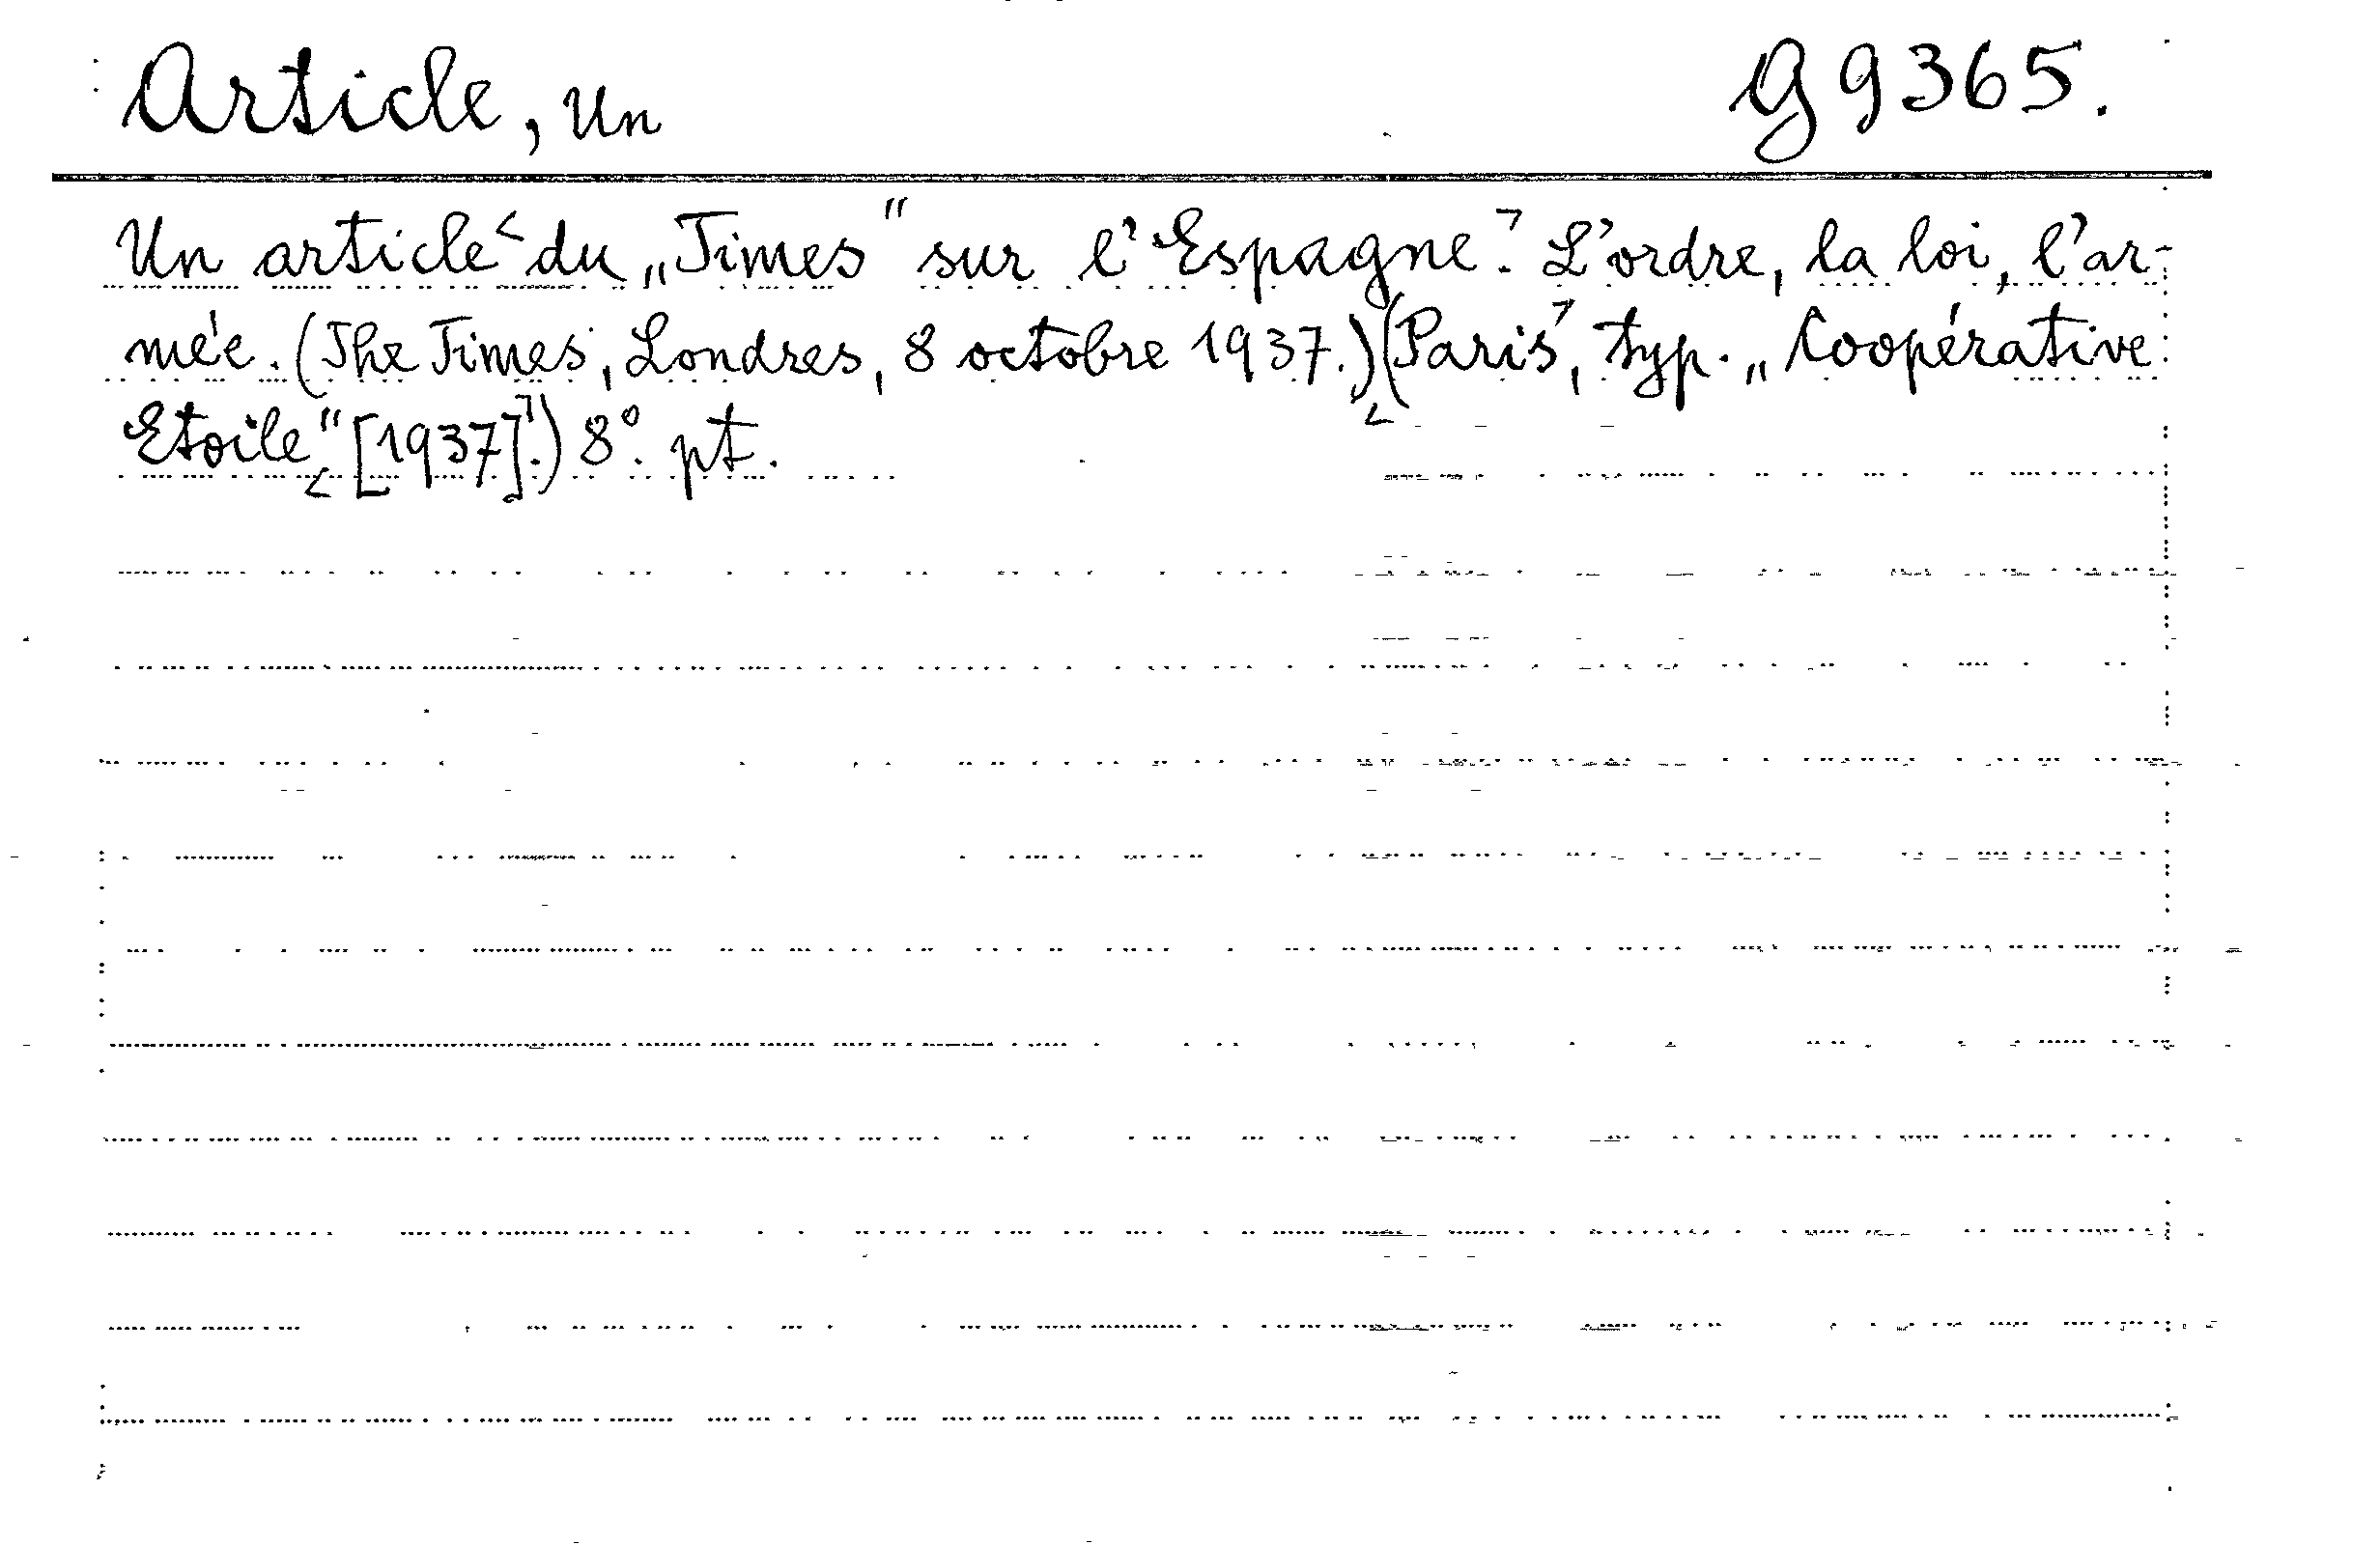 Article, Un G 9365.
Un article du „Times" sur l'Espagne. L'ordre, la loi, l'ar-
mée. (The Times, Londres, 8 octobre 1937.) (Paris, typ. „Coopérative
Etoile" [1937].) 8°. pt.